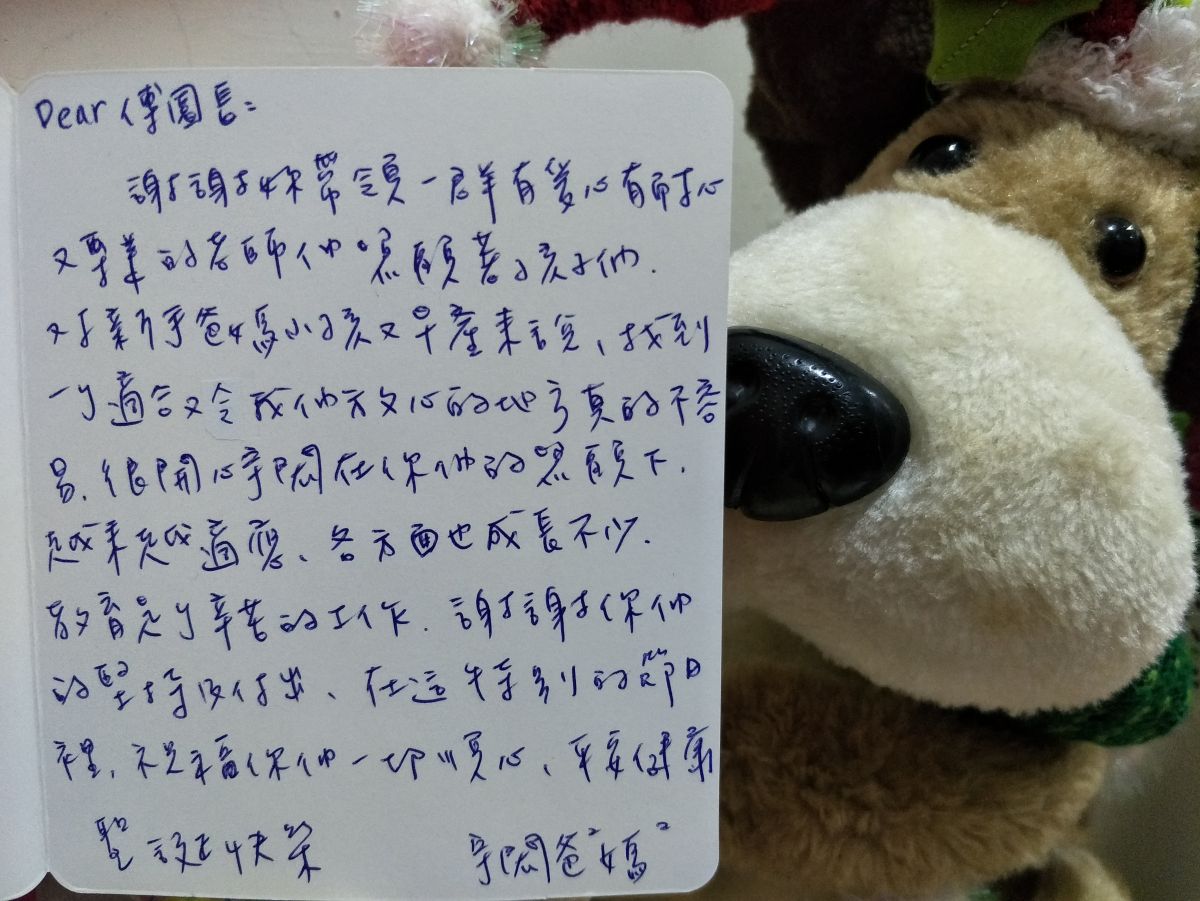 Dear 傅園長:
謝謝妳帶領一群有愛心有耐心
又專業的老師们照顧著小孩子们.
对于新手爸媽小孩又早產來說、找到
一个適合又令我们放心的地方真的不容
易.很開心宇閎在你们的照顧下.
越來越適應、各方面也成長不少.
教育是个辛苦的工作.謝謝你们
的堅持及付出、在這特別的節日
裡.祝福你们一切順心、平安健康
聖誕快樂 宇閎爸²媽²